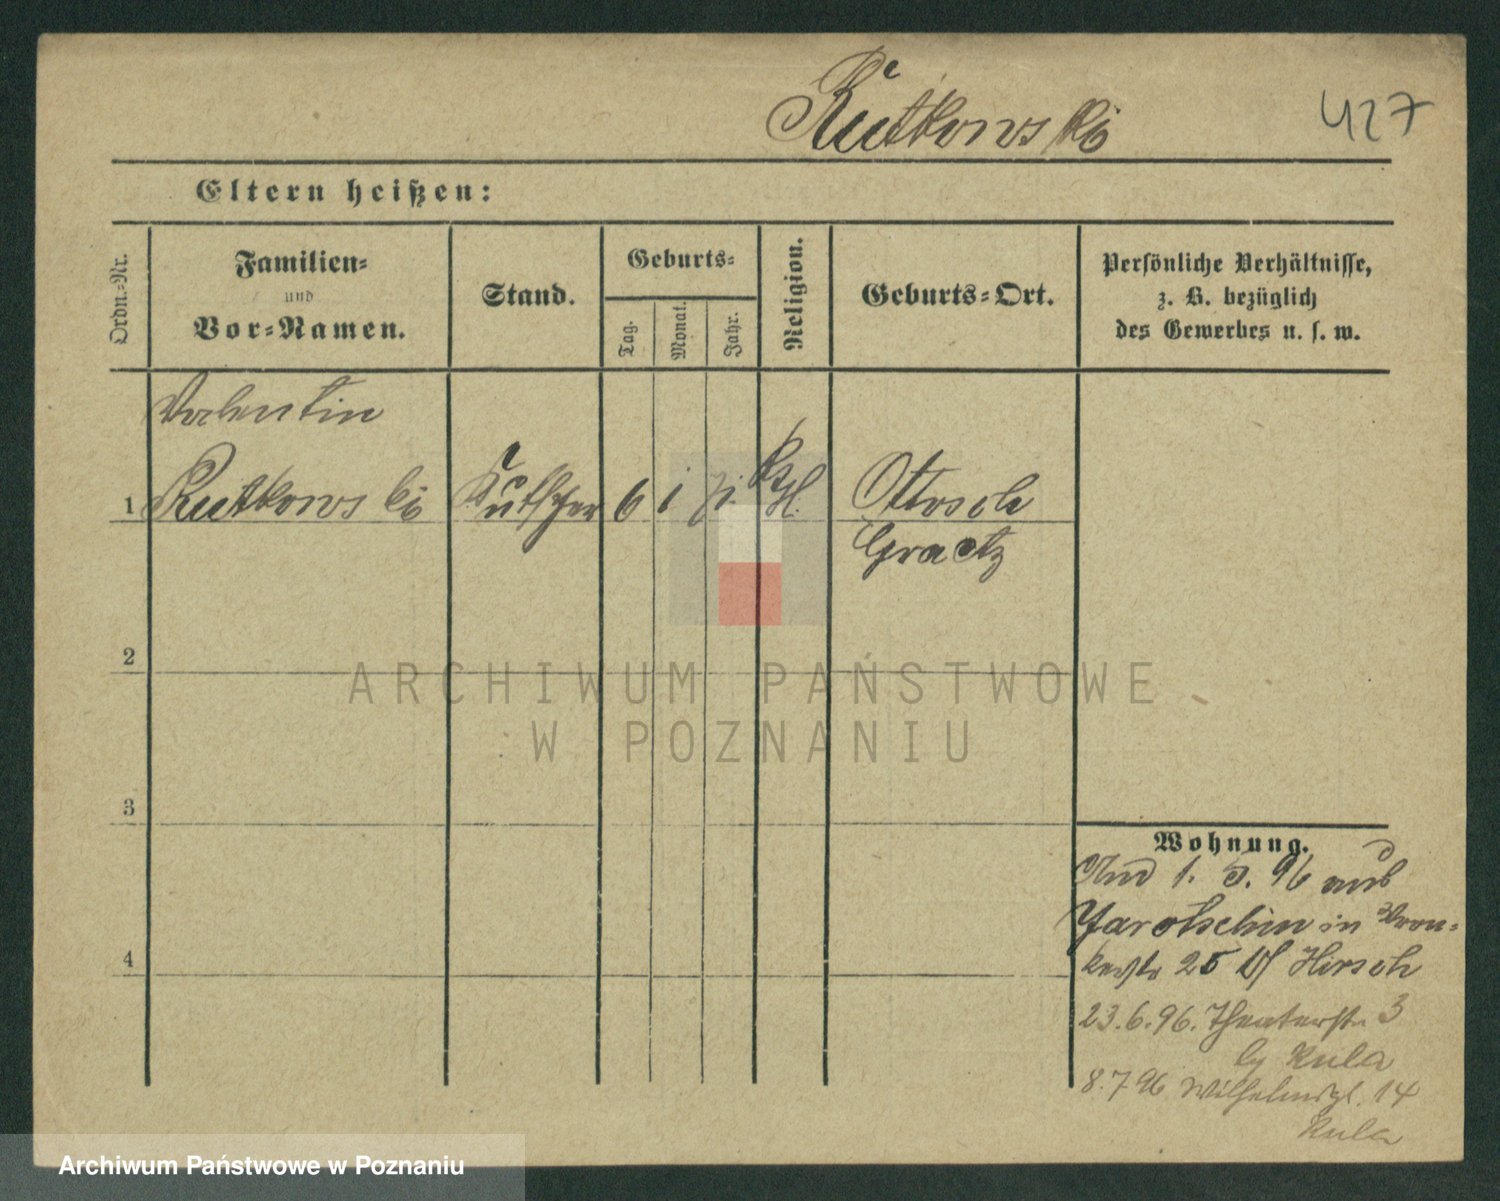 Rutkowski
427
Eltern heißen:
Ordn.-Nr.
Familien-
und
Vor-Namen.
Stand.
Geburts-
Tag.
Monat.
Jahr.
Religion.
Geburts-Ort.
Persönliche Verhältnisse,
z. B. bezüglich
des Gewerbes u. s. w.
Valentin
1 Rutkowski Kutscher 6 1
Graetz
2
ARCHIWUM PAŃSTWOWE
W POZNANIU
3
4
Wohnung.
1. 5. 96 aus
Jarotschin in Wron-
25 Hirsch
23.6.96. Theaterstr. 3
Kula
8.7.96 Wilhelmspl. 14
Kula
Archiwum Państwowe w Poznaniu